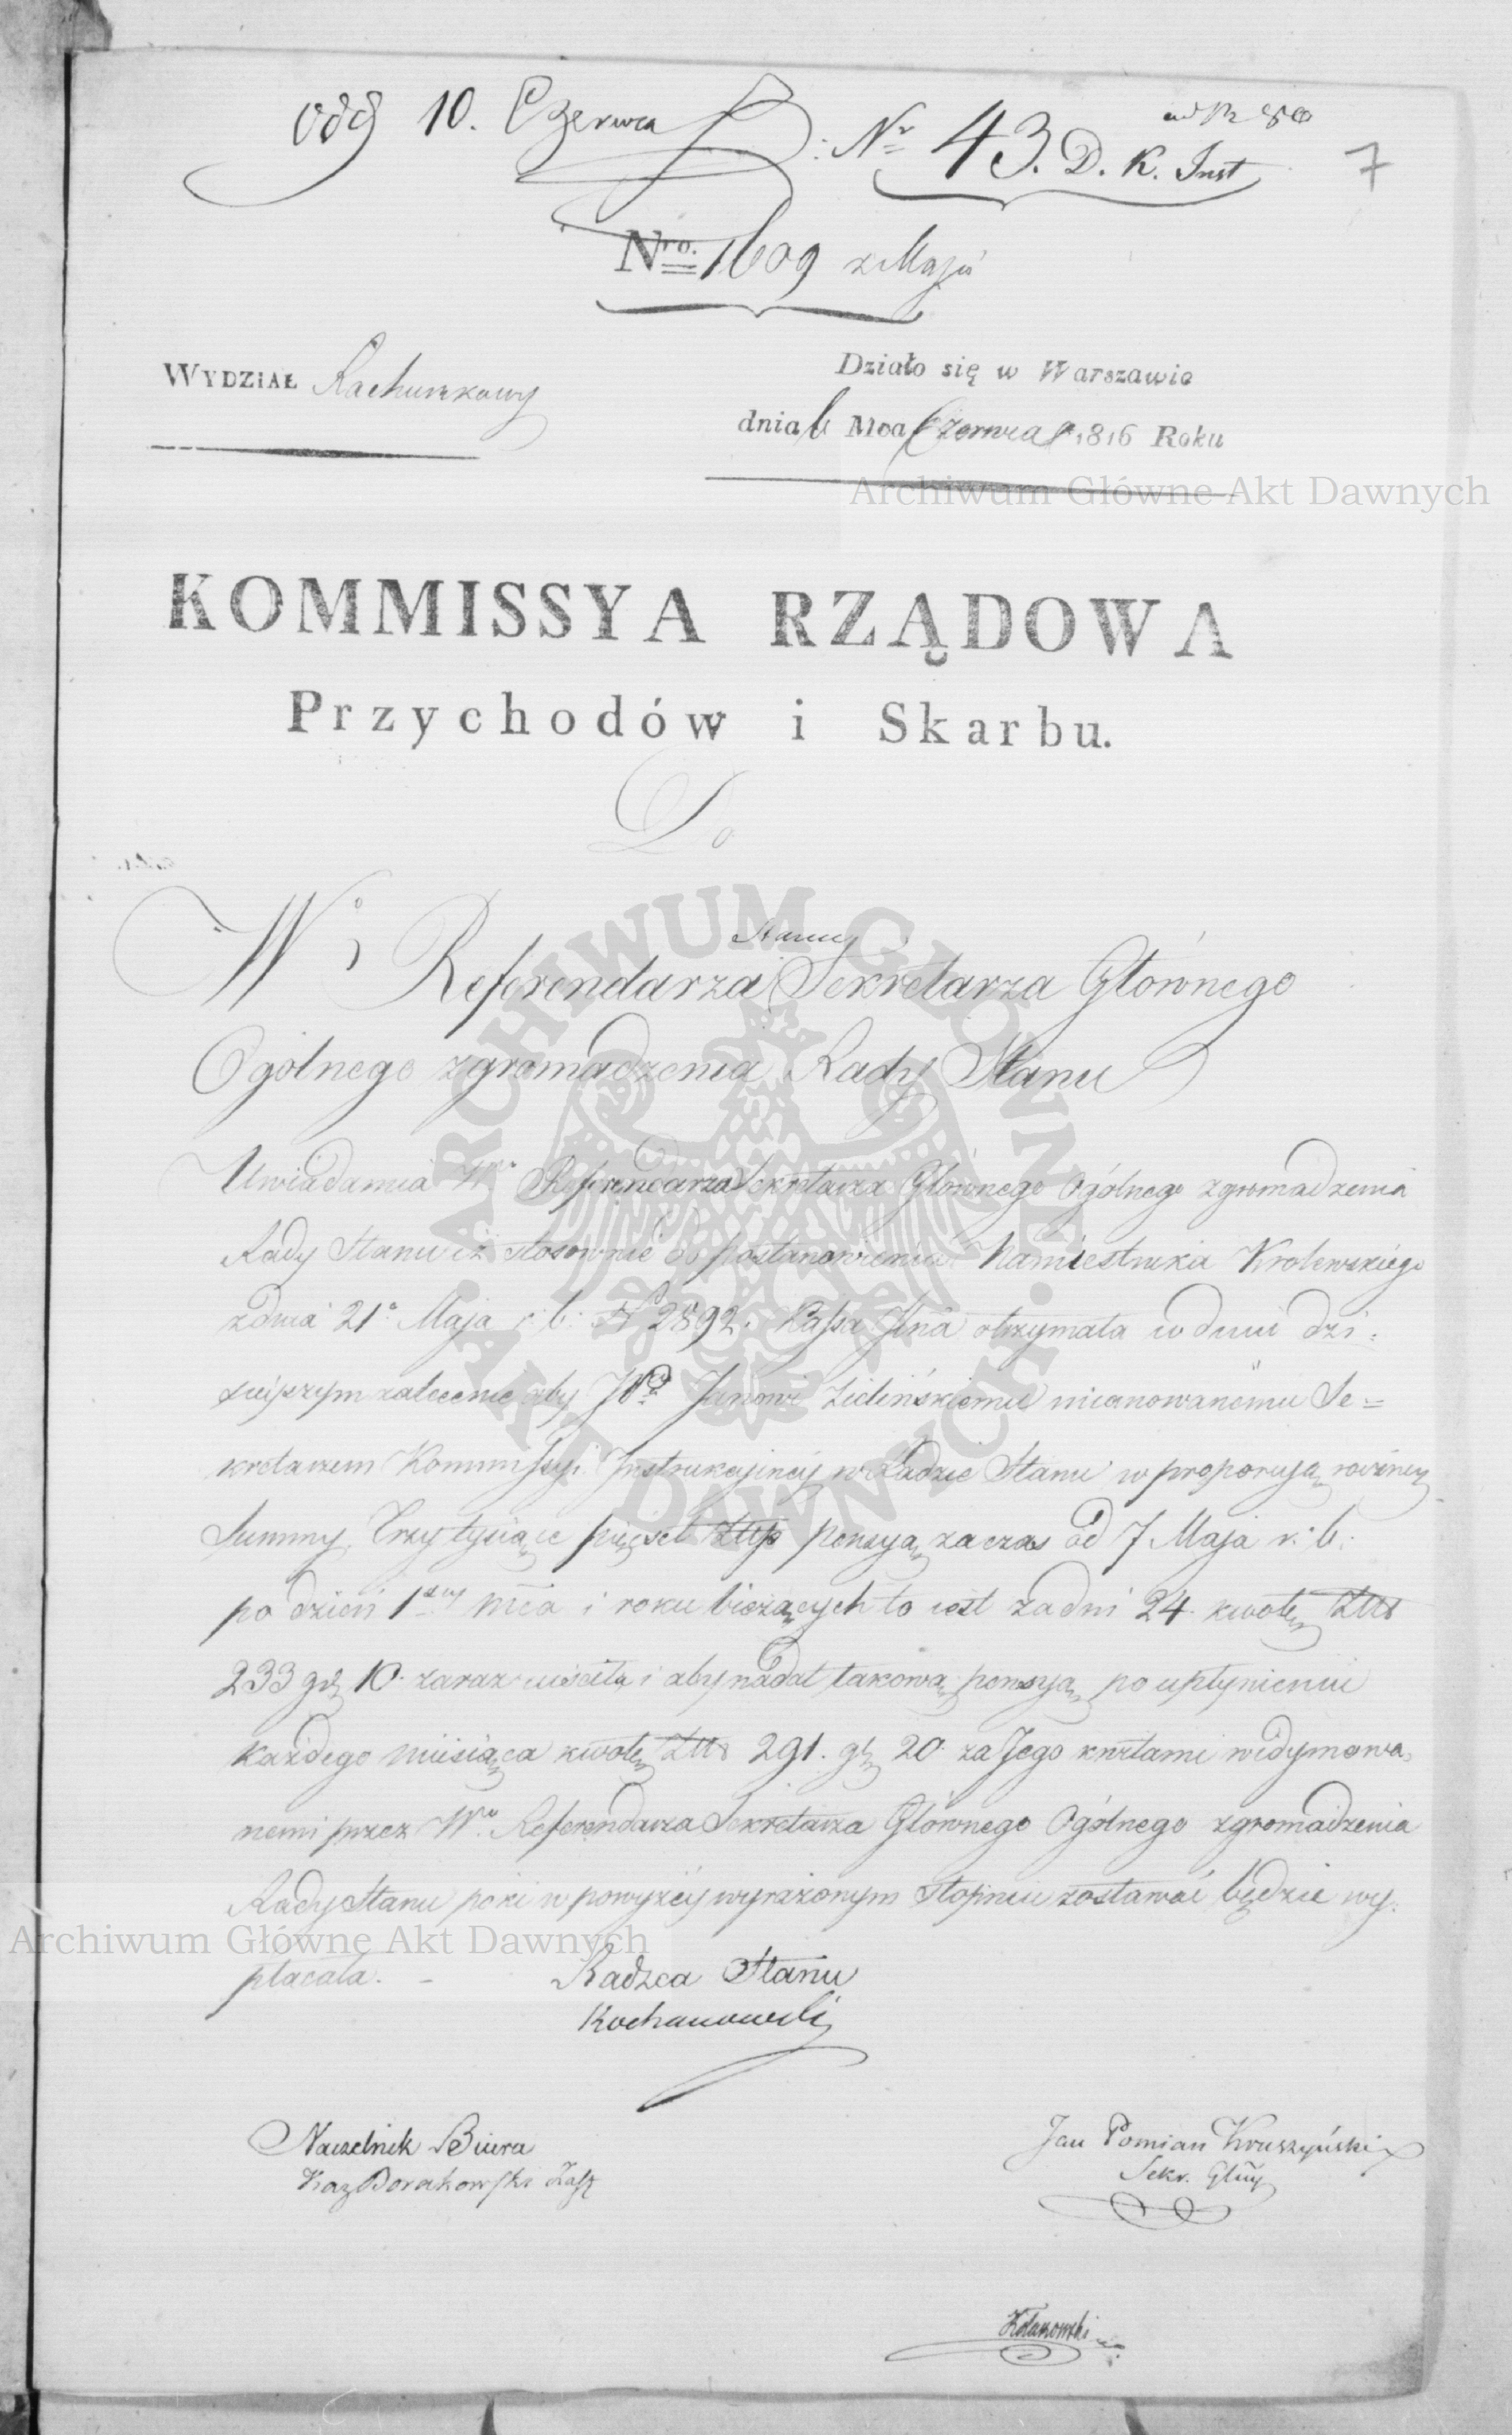 odd 10. Czerwca
Nr 43. D. K. Inst
7
Nro. 1609 z Maja
WYDZIAŁ Rachunkowy
Działo się w Warszawie
dnia 6 Mca Czerwca r. 1816 Roku
Archiwum Główne Akt Dawnych
KOMMISSYA RZĄDOWA
Przychodów i Skarbu.
Do
Stanu
Wo Referendarza Sekretarza Głównego
Ogólnego zgromadzenia Rady Stanu
Uwiadamia Wo Referendarza Sekretarza Głównego Ogólnego zgromadzenia
Rady Stanu iż stosownie do postanowienia Namiestnika Krolewskiego
z dnia 21o Maja r. b. No 2892. Kassa Głna otrzymała w dniu dzi-
sieyszym zalecenie aby JW Janowi Zielińskiemu mianowanemu Se=
kretarzem Kommissyi Instrukcyiney w Radzie Stanu w proporcyą roczney
Summy Trzy tysiące pięcset Złłp pensyą za czas od 7 Maja r. b.
po dzień 1szy mca i roku bieżących to iest za dni 24 kwotę Złł
233 gr 10. zaraz uiściła i aby nadal takową pensyą po upłynieniu
każdego miesiąca kwotę Złł 291. gr 20. za Jego kwitami widymowa-
nemi przez Wo Referendarza Sekretarza Głównego Ogólnego zgromadzenia
Rady Stanu poki w powyżey wyrażonym Stopniu zostawać będzie wy-
płacała. -
Archiwum Główne Akt Dawnych
Radzca Stanu
Kochanowski
Naczelnik Biura
Kaz Borakowski Zast
Jan Pomian Kruszyński
Sekr. Głny
ARCHIWUM GŁÓWNE AKT DAWNYCH